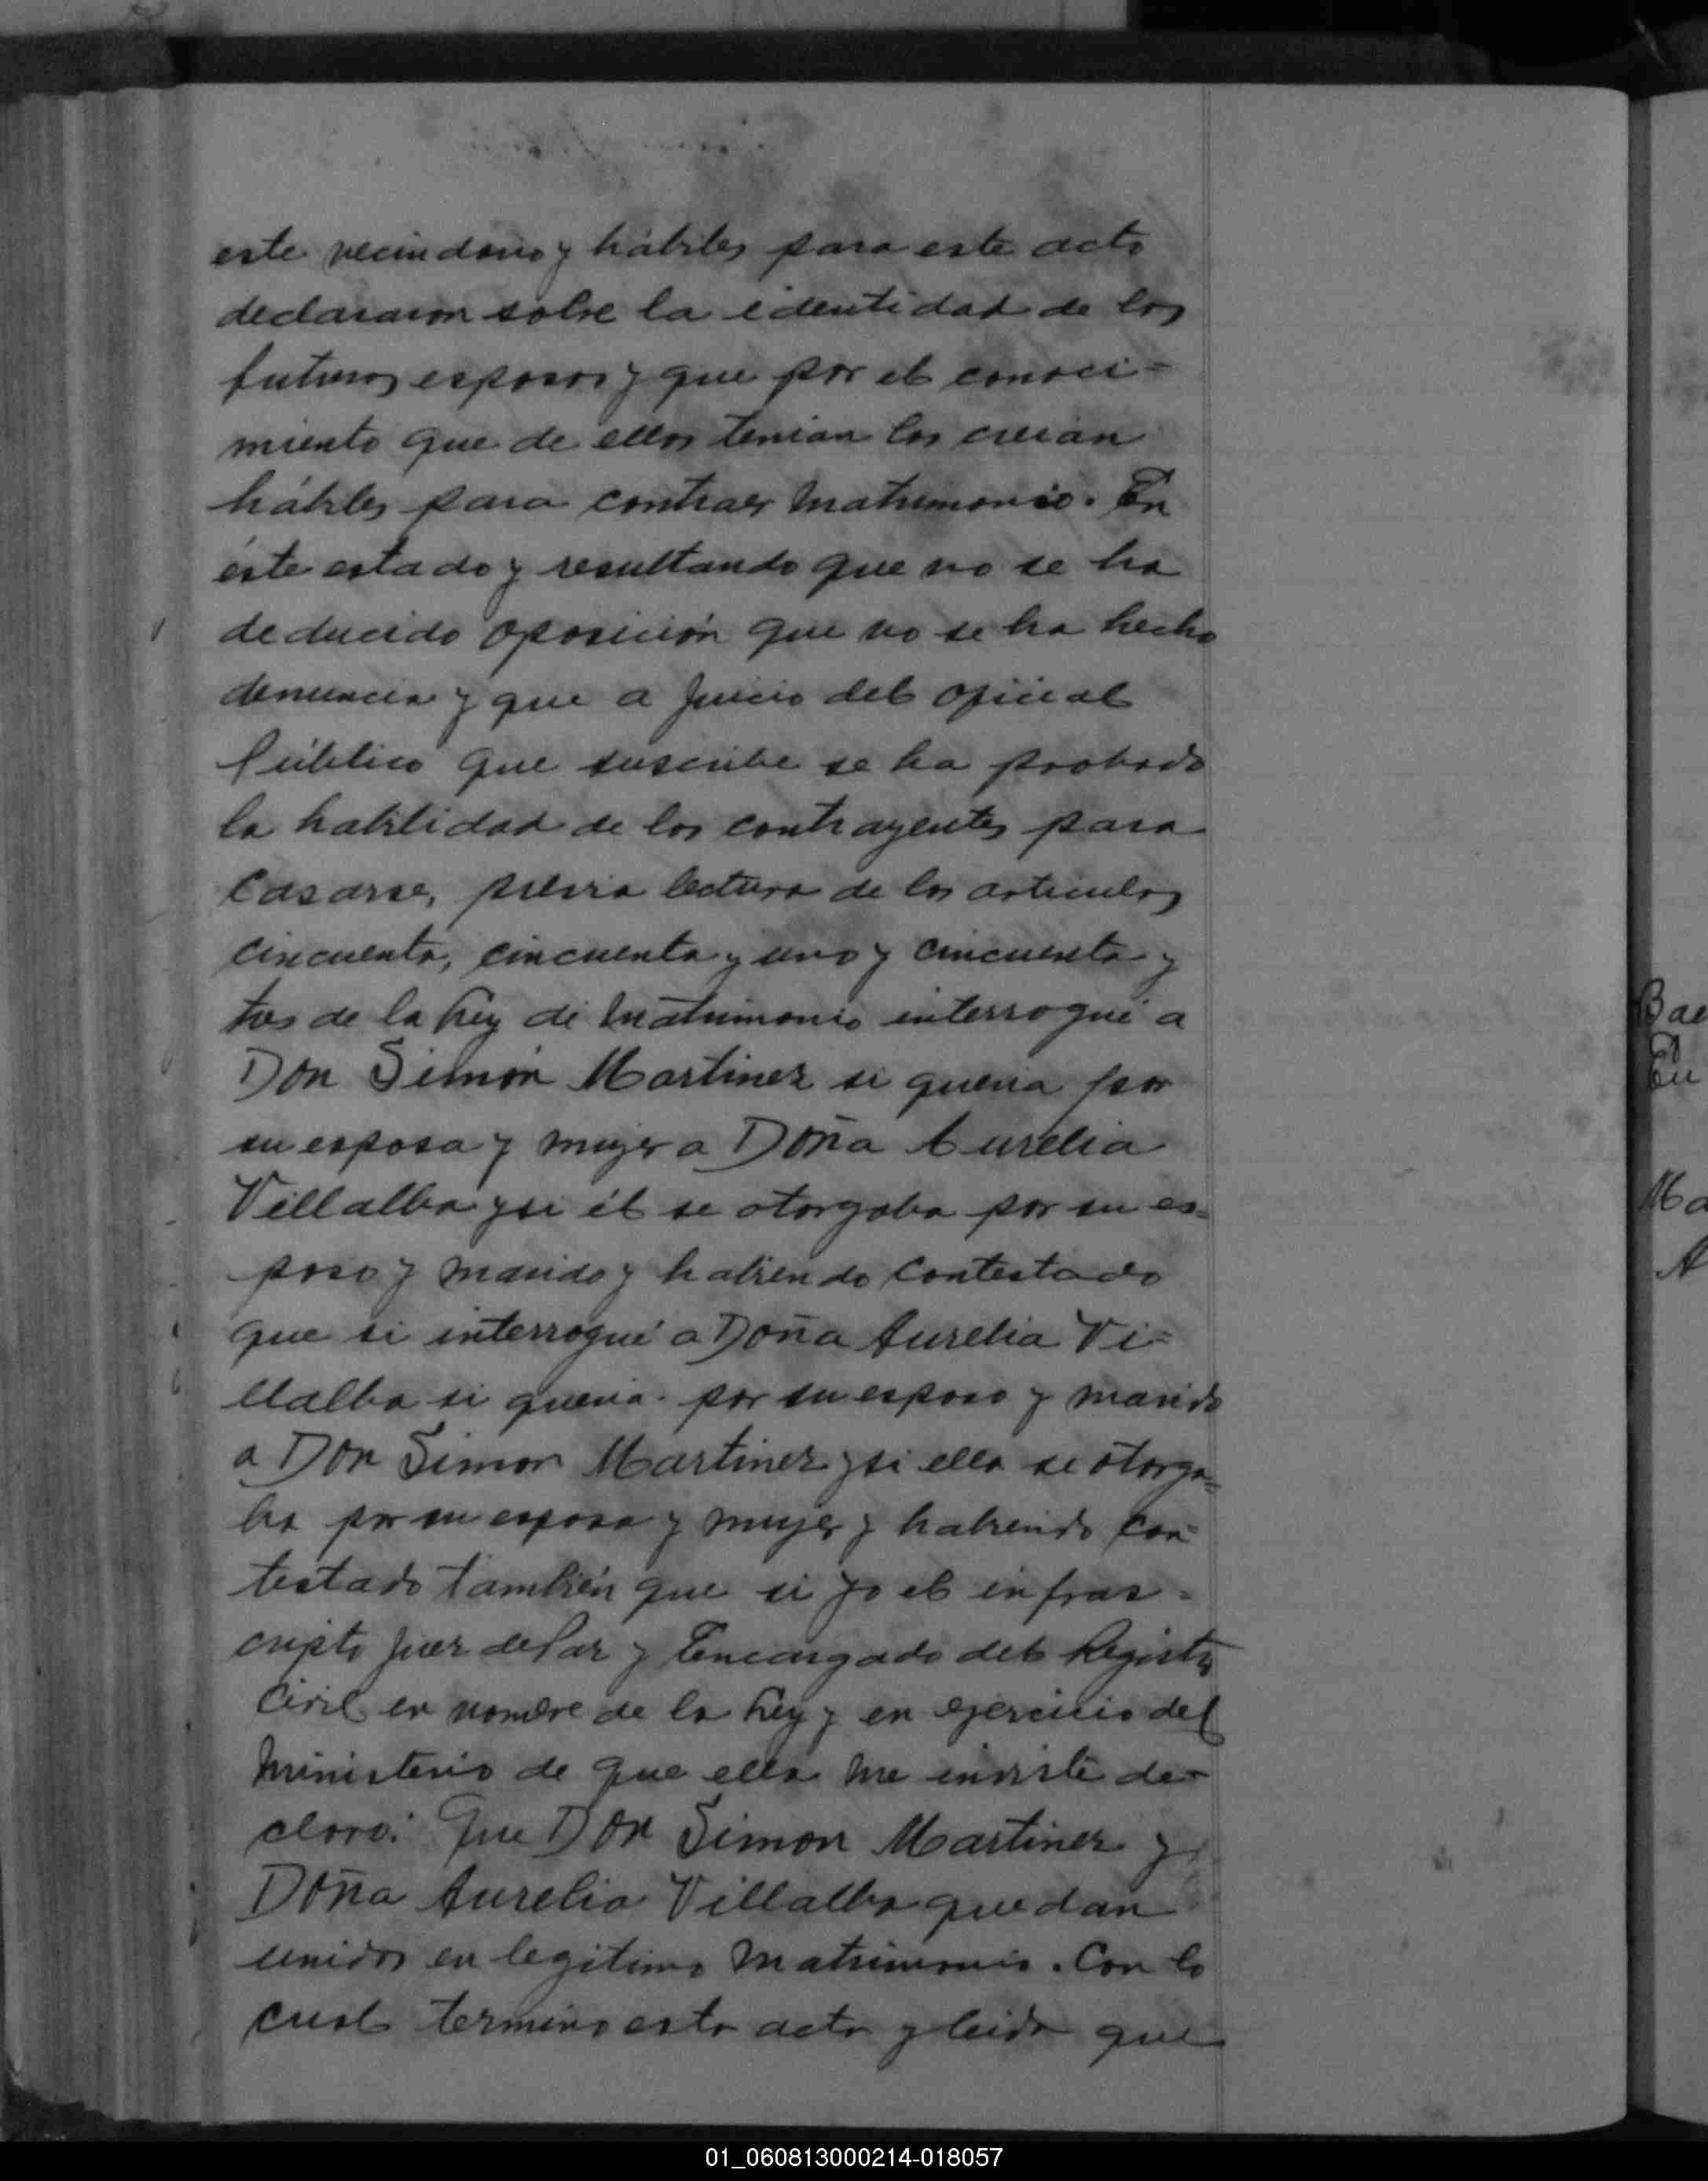 este vecindario y hábiles para este acto
declararon sobre la identidad de los
futuros esposos y que por el conoci=
miento que de ellos tenian los creian
hábiles para contraer Matrimonio. En
éste estado y resultando que no se ha
deducido oposición que no se ha hecho
denuncia y que a juicio del oficial
Público que suscribe se ha probado
la habilidad de los contrayentes para
Casarse, previa lectura de los articulos
cincuenta, cincuenta y uno y cincuenta y
tres de la Ley de Matrimonio interrogué a
Don Simón Martinez si queria por
su esposa y mujer a Doña Aurelia
Villalba y si él se otorgaba por su es=
poso y marido y habiendo contestado
que si interrogué a Doña Aurelia Vi=
llalba si queria por su esposo y marido
a Don Simon Martinez y si ella se otorga=
ba por su esposa y mujer y habiendo con=
testado también que si yo el infras=
cripto Juez de Paz y Encargado del Registro
Civil en nombre de la Ley y en ejercicio del
Ministerio de que ella me inviste de=
claro: Que Don Simon Martinez y
Doña Aurelia Villalba quedan
unidos en legitimo Matrimonio. Con lo
cual termino esta acta y leida que
Bae
En
Ma
A
01_060813000214-018057